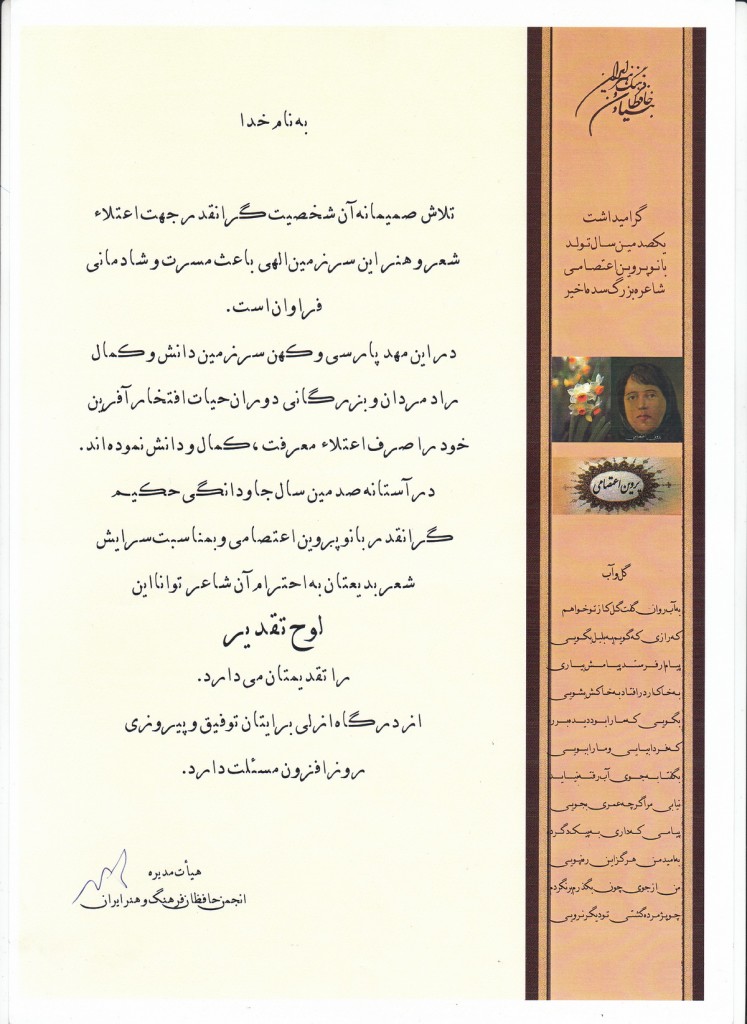 به نام خدا
تلاش صمیمانه آن شخصیت گرانقدر جهت اعتلاء
شعر و هنر این سرزمین الهی باعث مسرت و شادمانی
فراوان است.
در این مهد پارسی و کهن سرزمین دانش و کمال
راد مردان و بزرگانی دوران حیات افتخار آفرین
خود را صرف اعتلاء معرفت ، کمال و دانش نموده اند.
در آستانه صدمین سال جاودانگی حکیم
گرانقدر بانو پروین اعتصامی و بمناسبت سرایش
شعر بدیعتان به احترام آن شاعر توانا این
لوح تقدیر
را تقدیمتان می دارد.
از درگاه ازلی برایتان توفیق و پیروزی
روز افزون مسئلت دارد.
هیأت مدیره
انجمن حافظان فرهنگ و هنر ایران
گرامیداشت
یکصدمین سال تولد
بانو پروین اعتصامی
شاعره بزرگ سده اخیر
پروین اعتصامی
گل و آب
به آب روان گفت گل کاز تو خواهم
که رازی که گویم به بلبل بگویی
پیام ار فرستد پیامش بیاری
به خاک ار در افتاد به خاکش بشویی
بگویی که ما را بود دیده بر ره
که فردا بیایی و ما را ببویی
بگفتا به جوی آب رفته نیاید
نیابی مرا گر چه عمری بجویی
پیامی که داری به پیک دگر ده
به امید من هرگز این ره نپویی
من از جوی چون بگذرم برنگردم
چو پژمرده گشتی تو دیگر نرویی